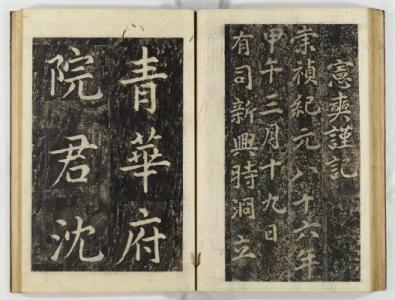 憲奭謹記
崇禎紀元八十六年
甲午三月十九日
有司新興時洞立
青華府
院君沈